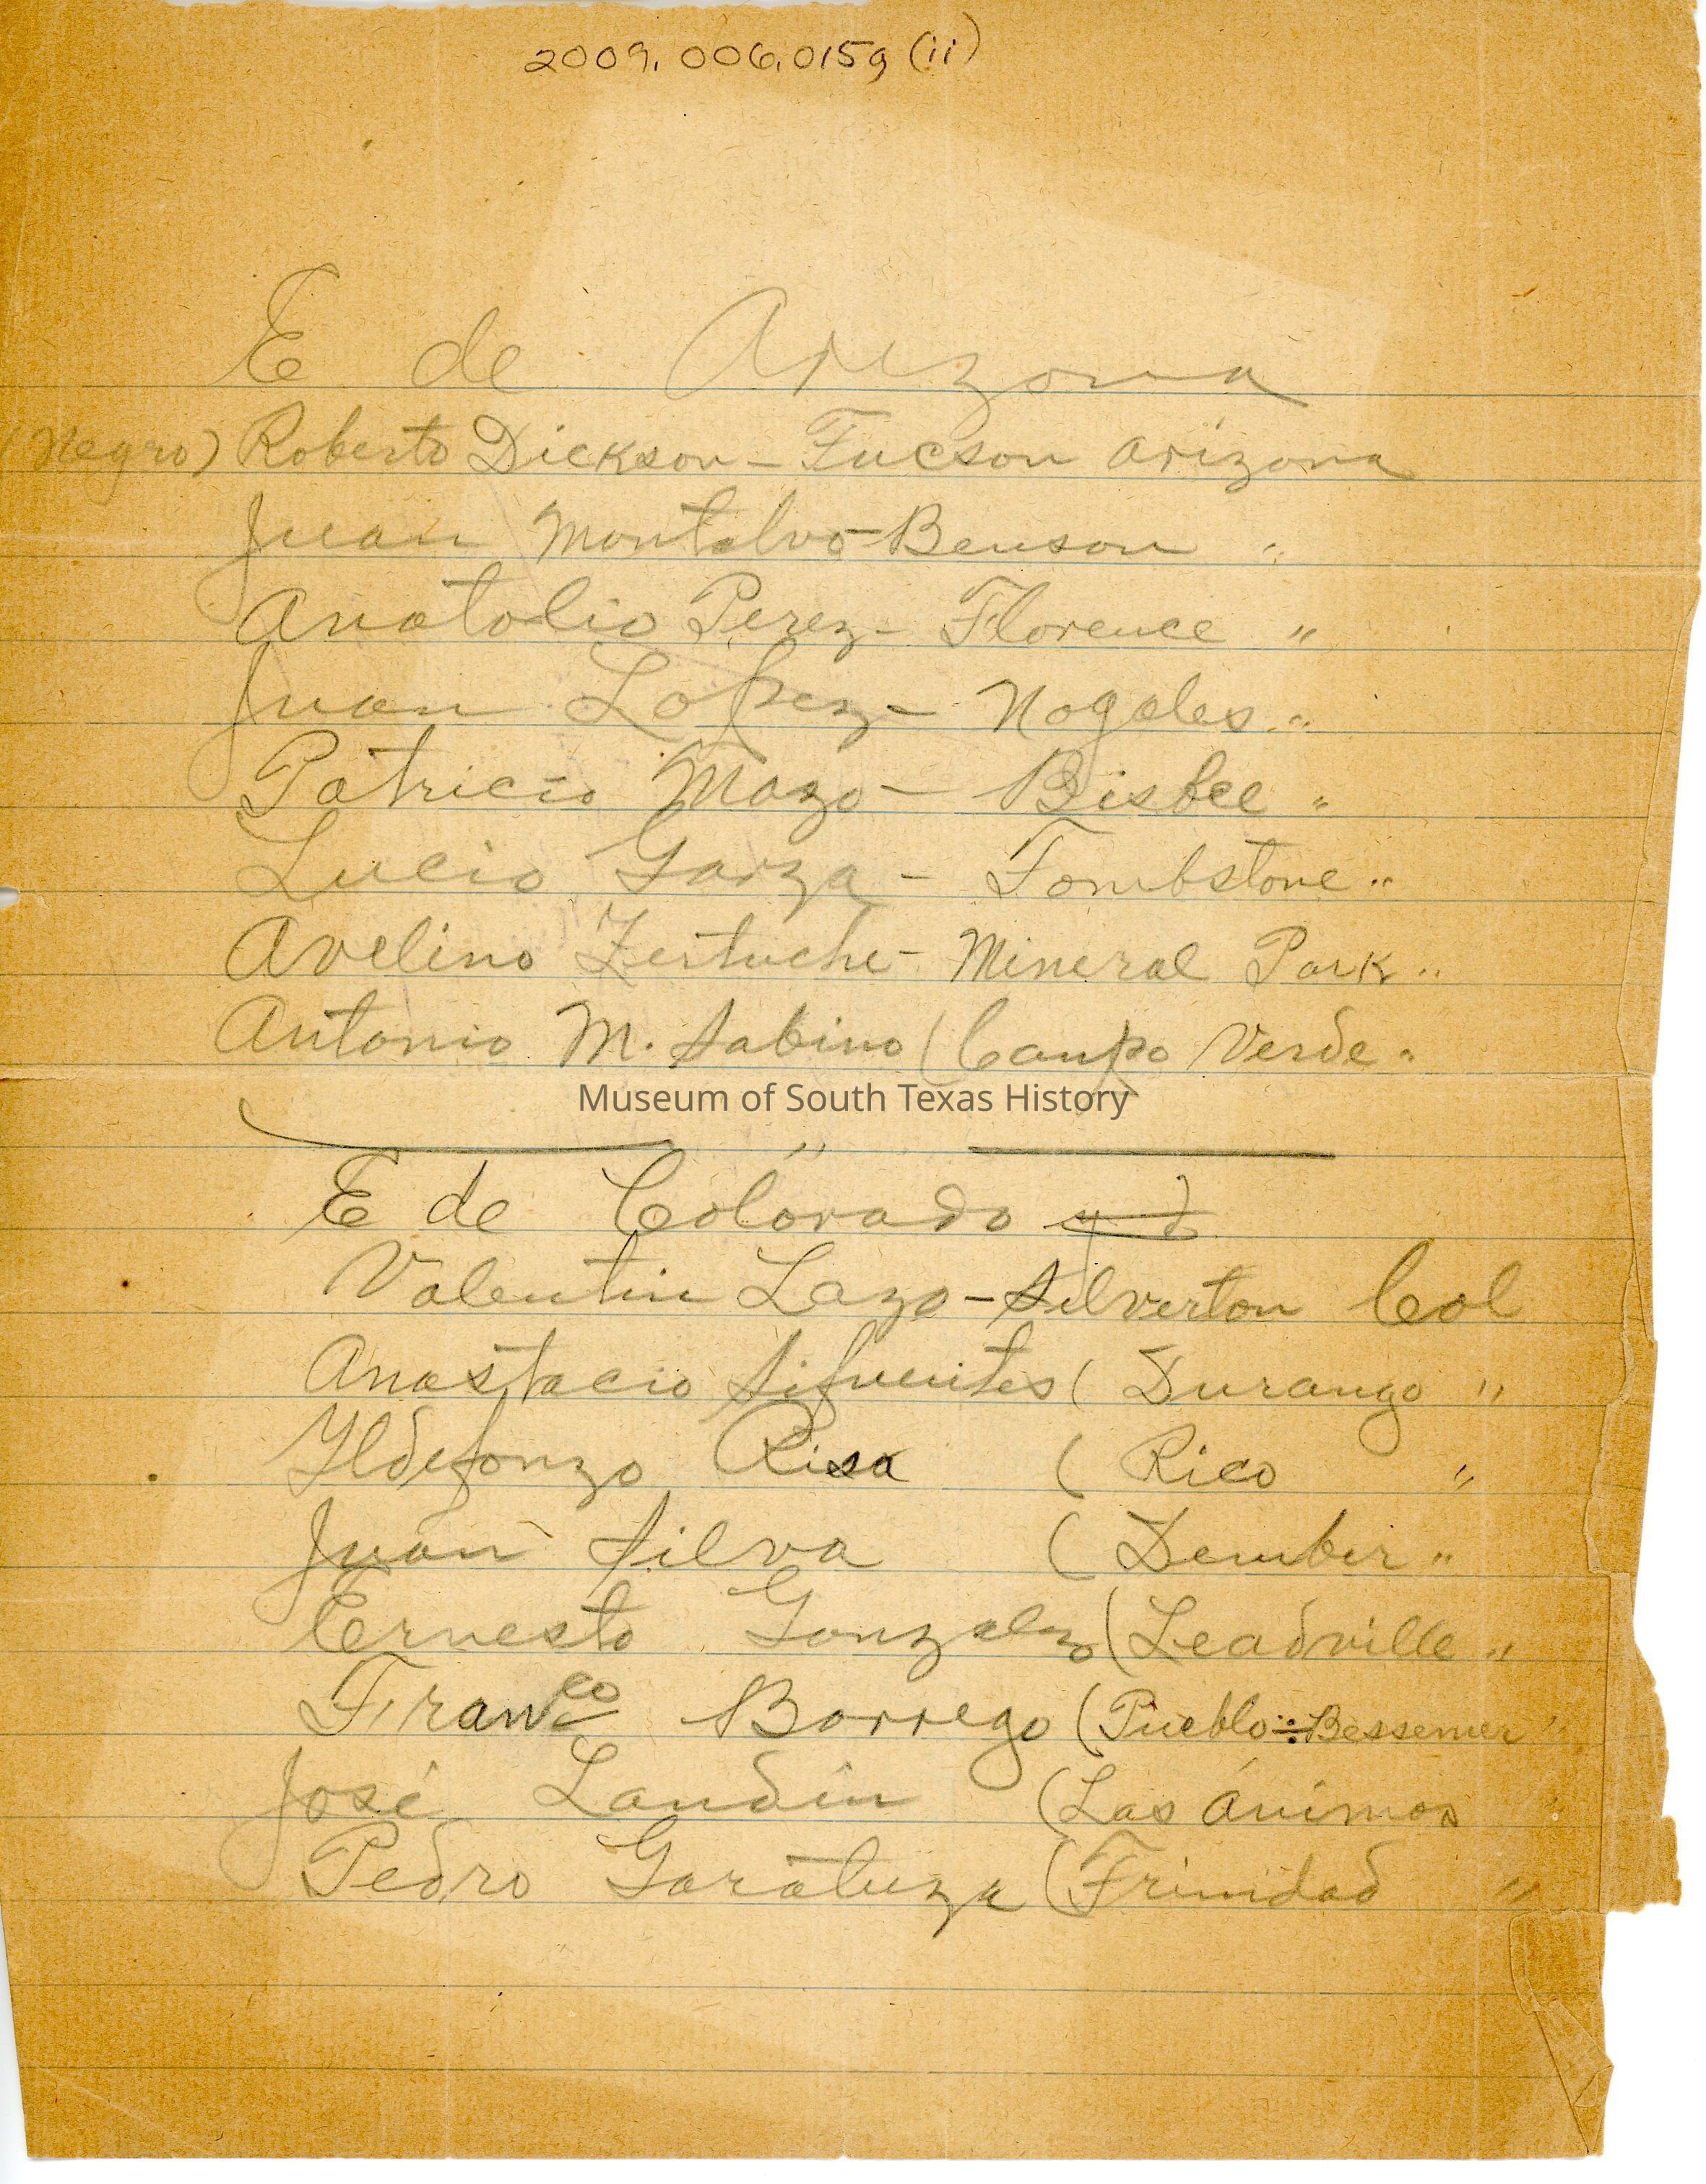 2009.006.015g (ii)
E de Arizona
(Negro) Roberto Dickson - Tucson Arizona
Juan Montalvo - Benson "
Anatolio Perez - Florence "
Juan Lopez - Nogales "
Patricio Mazo - Bisbee "
Lucio Garza - Tombstone "
Avelino Zertuche - Mineral Park "
Antonio M. Sabino (Campo Verde "
Museum of South Texas History
"
E de Colorado
Valentin Lazo - Silverton Col
Anastacio Sifuentes ( Durango "
Ildefonzo Risa ( Rico "
Juan Silva ( Dember "
Ernesto Gonzalez ( Leadville "
Franco Borrego ( Pueblo÷Bessemer "
José Landin ( Las Ánimas "
Pedro Garatuza ( Trinidad "